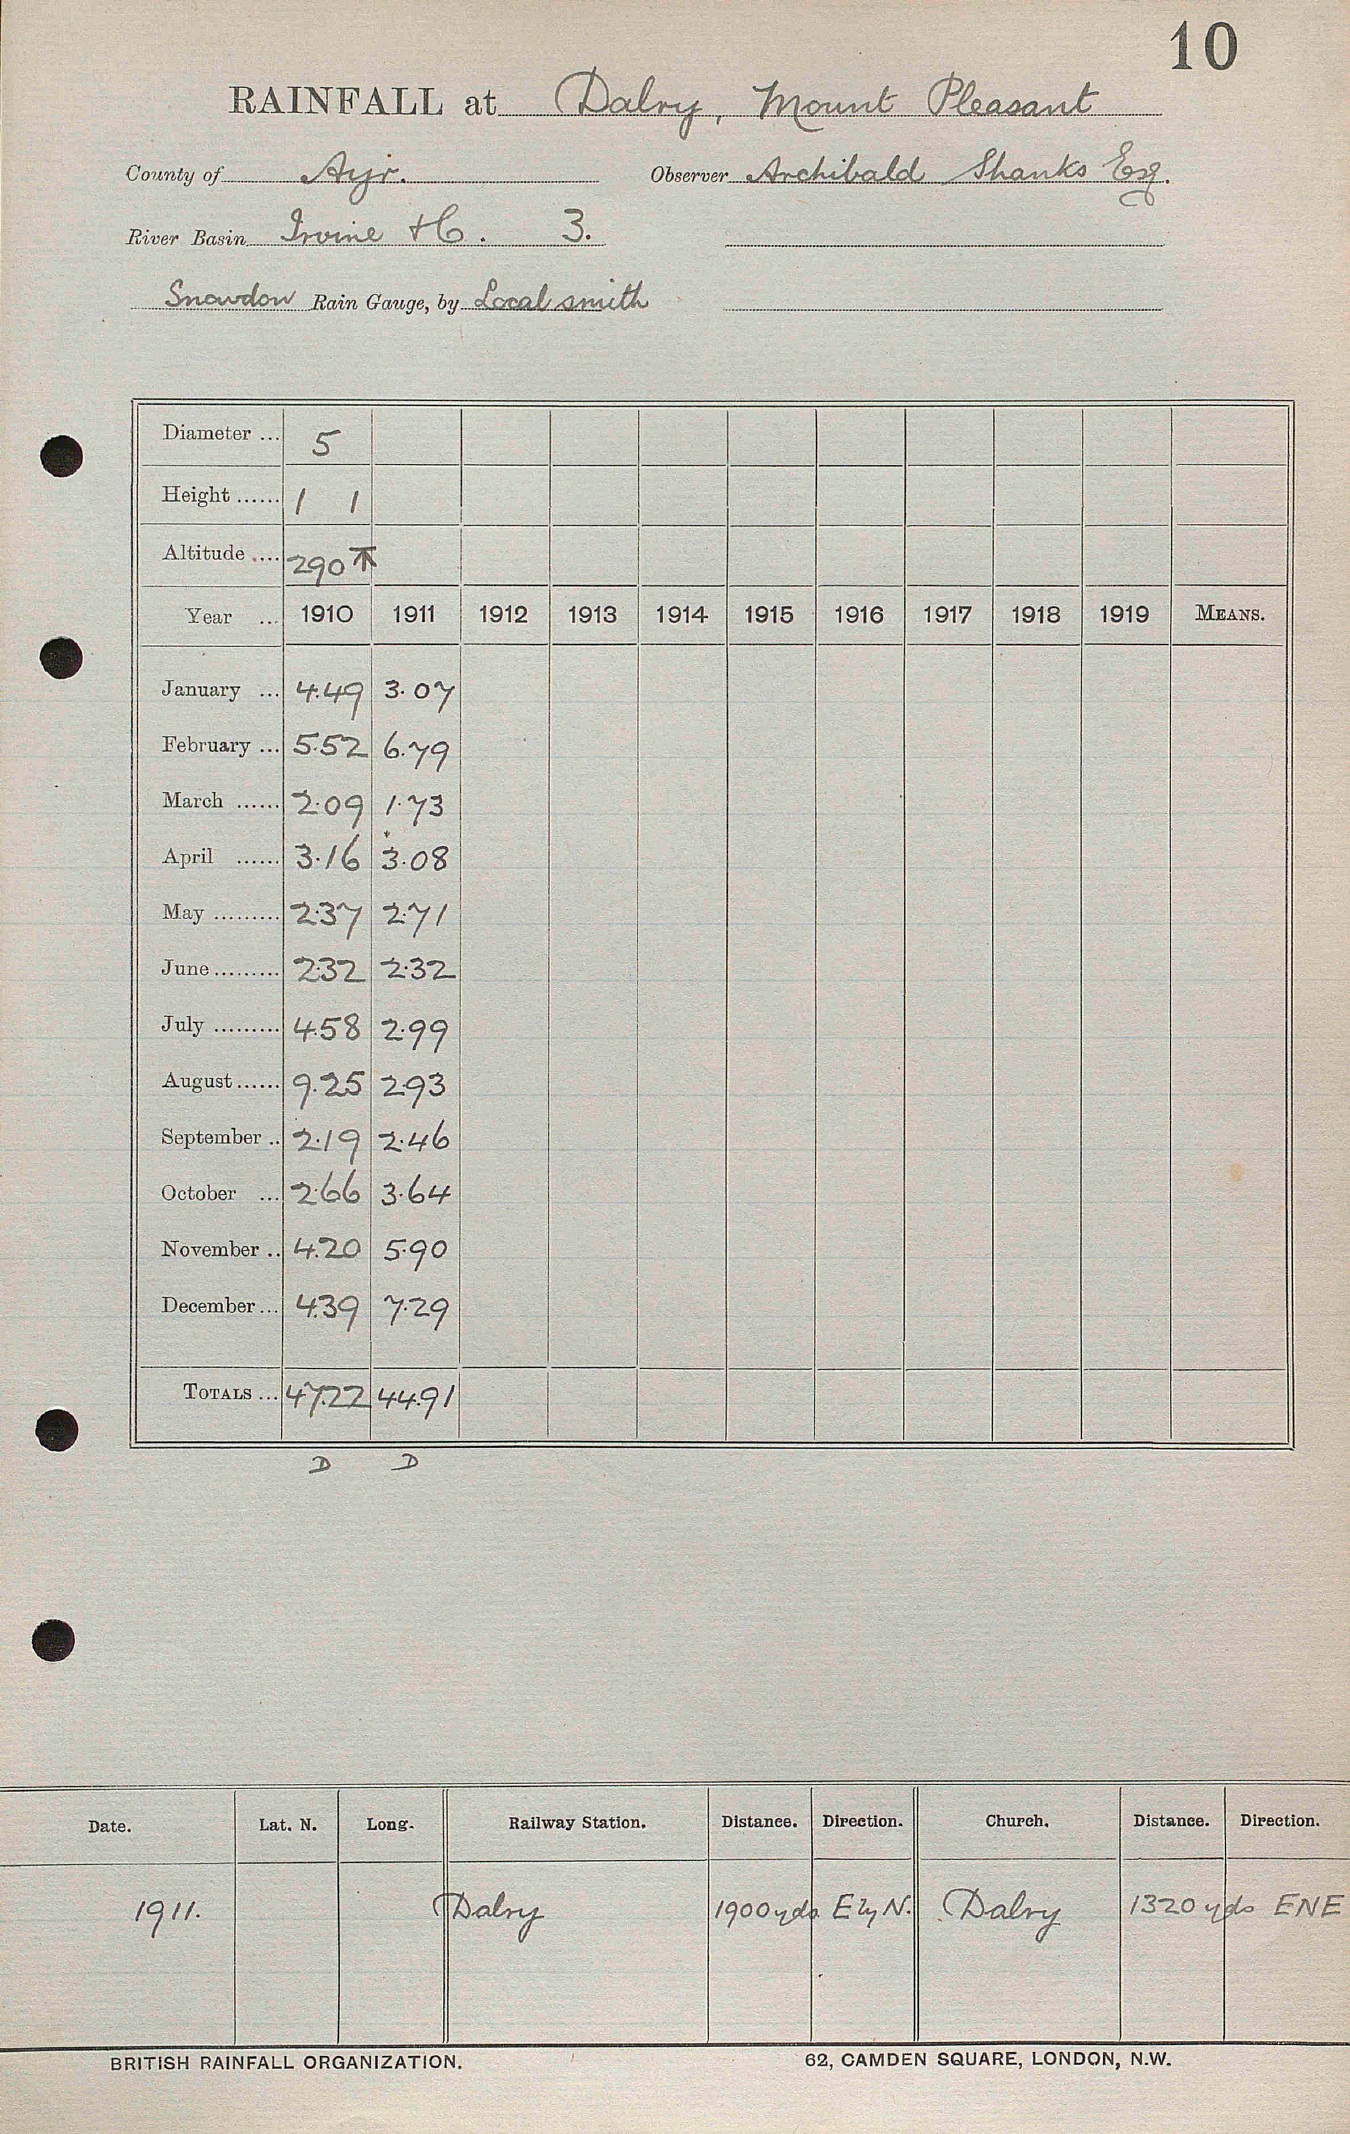 10
RAINFALL at Dalry, Mount Pleasant
County of Ayr. Observer Archibald Shanks Esq.
River Basin Irvine &c. 3.
Snowdon Rain Gauge, by Local smith
Diameter ... 5
Height ...... 1 1
Altitude .... 290
Year ... 1910 1911 1912 1913 1914 1915 1916 1917 1918 1919 MEANS.
January ... 4.49 3.07
February ... 5.52 6.79
March ...... 2.09 1.73
April ...... 3.16 3.08
May ......... 2.37 2.71
June ......... 2.32 2.32
July ......... 4.58 2.99
August ...... 9.25 2.93
September .. 2.19 2.46
October ... 2.66 3.64
November .. 4.20 5.90
December ... 4.39 7.29
TOTALS ... 47.22 44.91
D D
Date. Lat. N. Long. Railway Station. Distance. Direction. Church. Distance. Direction.
1911. Dalry 1900 yds E by N. Dalry 1320 yds ENE
BRITISH RAINFALL ORGANIZATION. 62, CAMDEN SQUARE, LONDON, N.W.